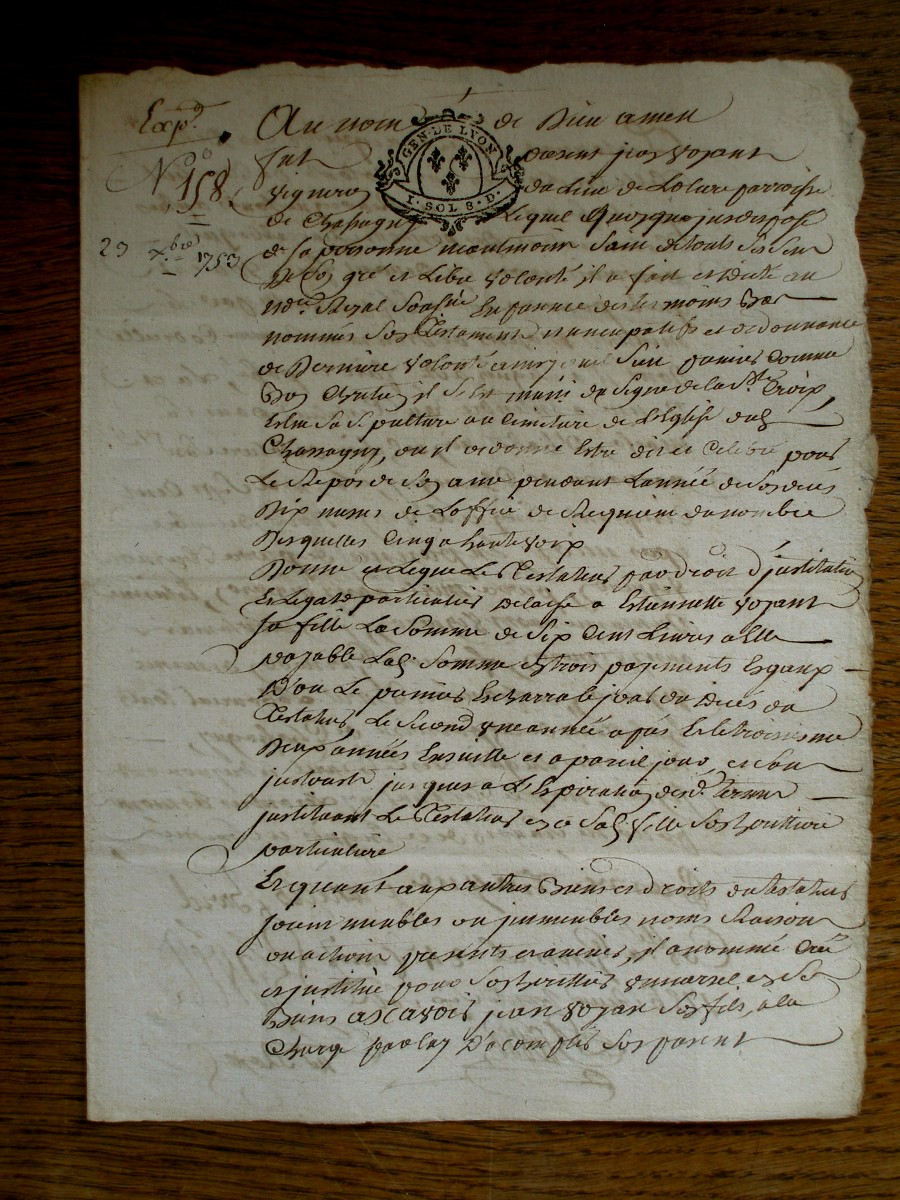 Expᵈ
N° 158
23 xbre 1753
GEN. DE LYON
1. SOL 8. D.
Au nom de Dieu amen
fut present jean voyant
vigneron du lieu de parroisse
de Chassagny Lequel quoyque indisposé
de sa personne neantmoins sain de touts ses sens
De son gré et Libre volonté il a fait et dicté au
nore Royal soussné En presence des tesmoins Bas
nommés son Testament nuncupatif et ordonnance
de Derniere volonté ainsy que suit premier comme
Bon Chretien il s'est muni du signe de la Ste Croix
Eslu sa sepulture au Cimetiere de L'Eglise dud
Chassagny, ou il ordonne Estre dit et Celebré pour
Le Repos de son ame pendant L'année de son deces
Dix messes de L'office de Requiem du nombre
Desquelles Cinq a haute voix
Donne et Legue Le Testateur par droit d'institution
Et Legat particulier Delaisse a Estiennette voyant
sa fille La somme de six Cent Livres a Elle
payable Lad somme en trois payements Esgaux
D'ou Le premier Escherra le jour du Deces du
Testateur, Le second une année apres Et le troisieme
Deux années Ensuitte et a pareil jour, et ainsi
jusques a L'Expiration desd. termes
instituant Le Testateur en ce sad fille son heritiere
particuliere
Et quant aux autres Biens et droits du testateur
soient meubles ou immeubles noms Raisons
ou actions presents et avenir, il a nommé Créé
et institué pour son heritier universel en ses
Biens ascavoir jean voyan son fils, a la
Charge par luy D'acomplir son present